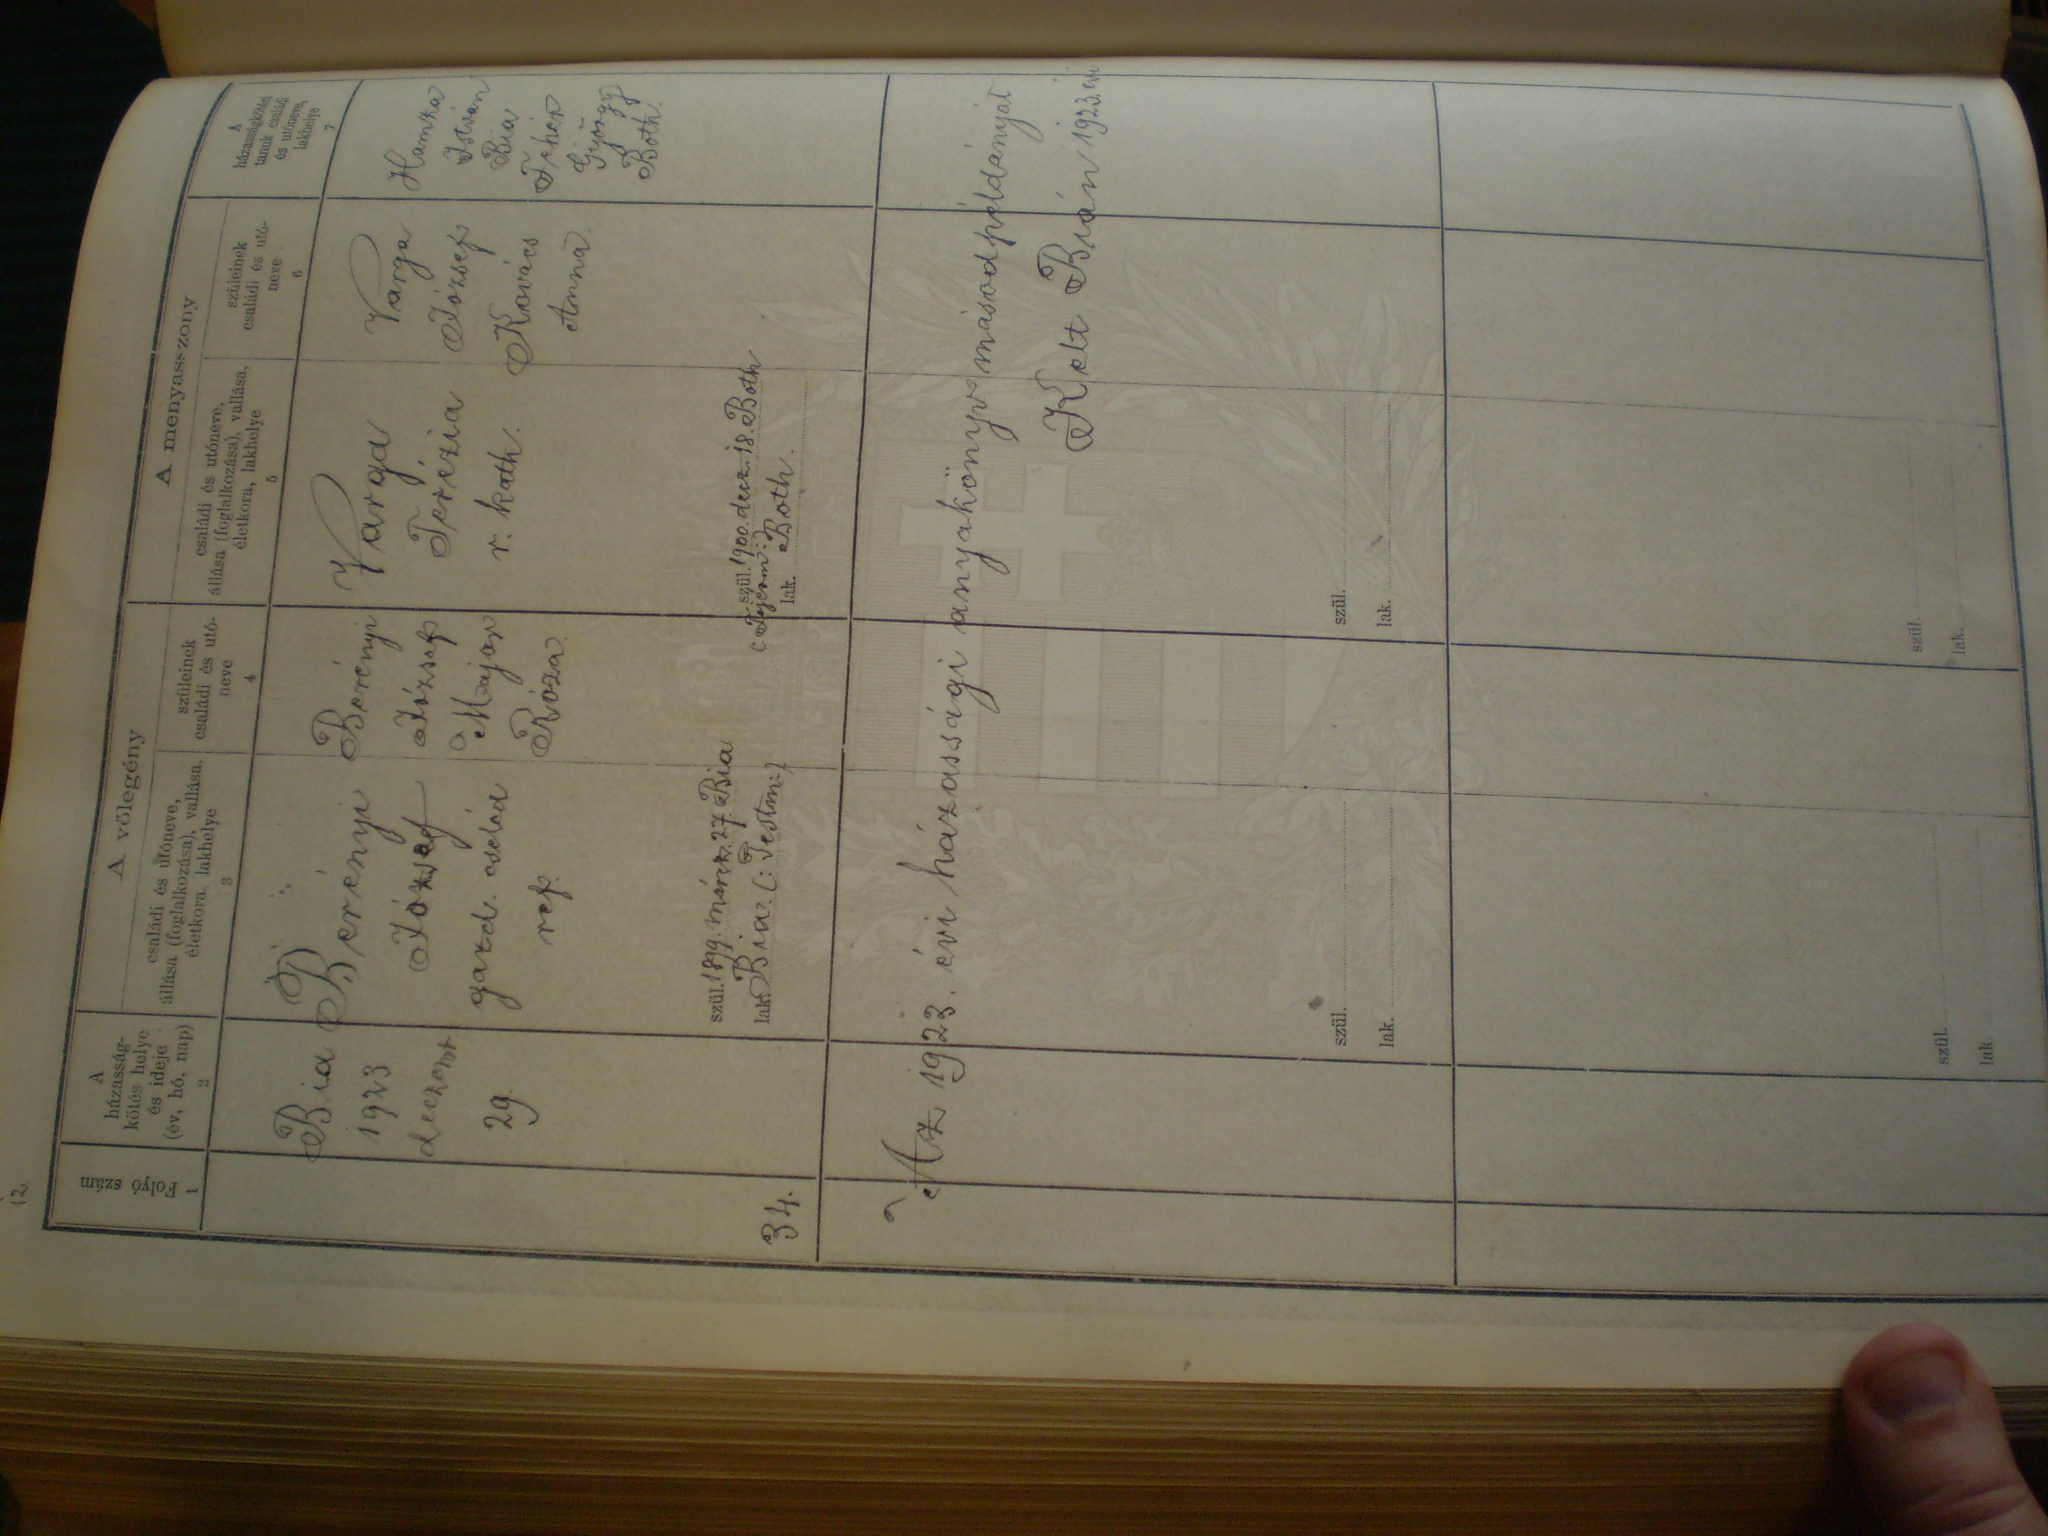 12.
A vőlegény
A menyasszony
Folyó szám
1
A
házasság-
kötés helye
és ideje
(év, hó, nap)
2
családi és utóneve,
állása (foglalkozása), vallása,
életkora, lakhelye
3
szüleinek
családi és utó-
neve
4
családi és utóneve,
állása (foglalkozása), vallása,
életkora, lakhelye
5
szüleinek
családi és utó-
neve
6
A
házasságkötési
tanuk családi
és utóneve,
lakhelye
7
34.
Bia
1923
deczemr
29.
Berényi
József
gazd. cseléd
ref.
szül. 1899. márcz. 27. Bia
lak. Bia. (: Pestm :)
Berényi
József
Major
Róza.
Varga
Terézia
r. kath.
szül. 1900. decz. 18. Both
(: Fejérm :)
lak. Both.
Varga
József
Kovács
Anna.
Hamza
István
Bia
Fehér
György
Both.
Az 1923. évi házassági anyakönyv másodpéldányját
Kelt Bián 1923. évi
szül.
lak.
szül.
lak.
szül.
lak.
szül.
lak.